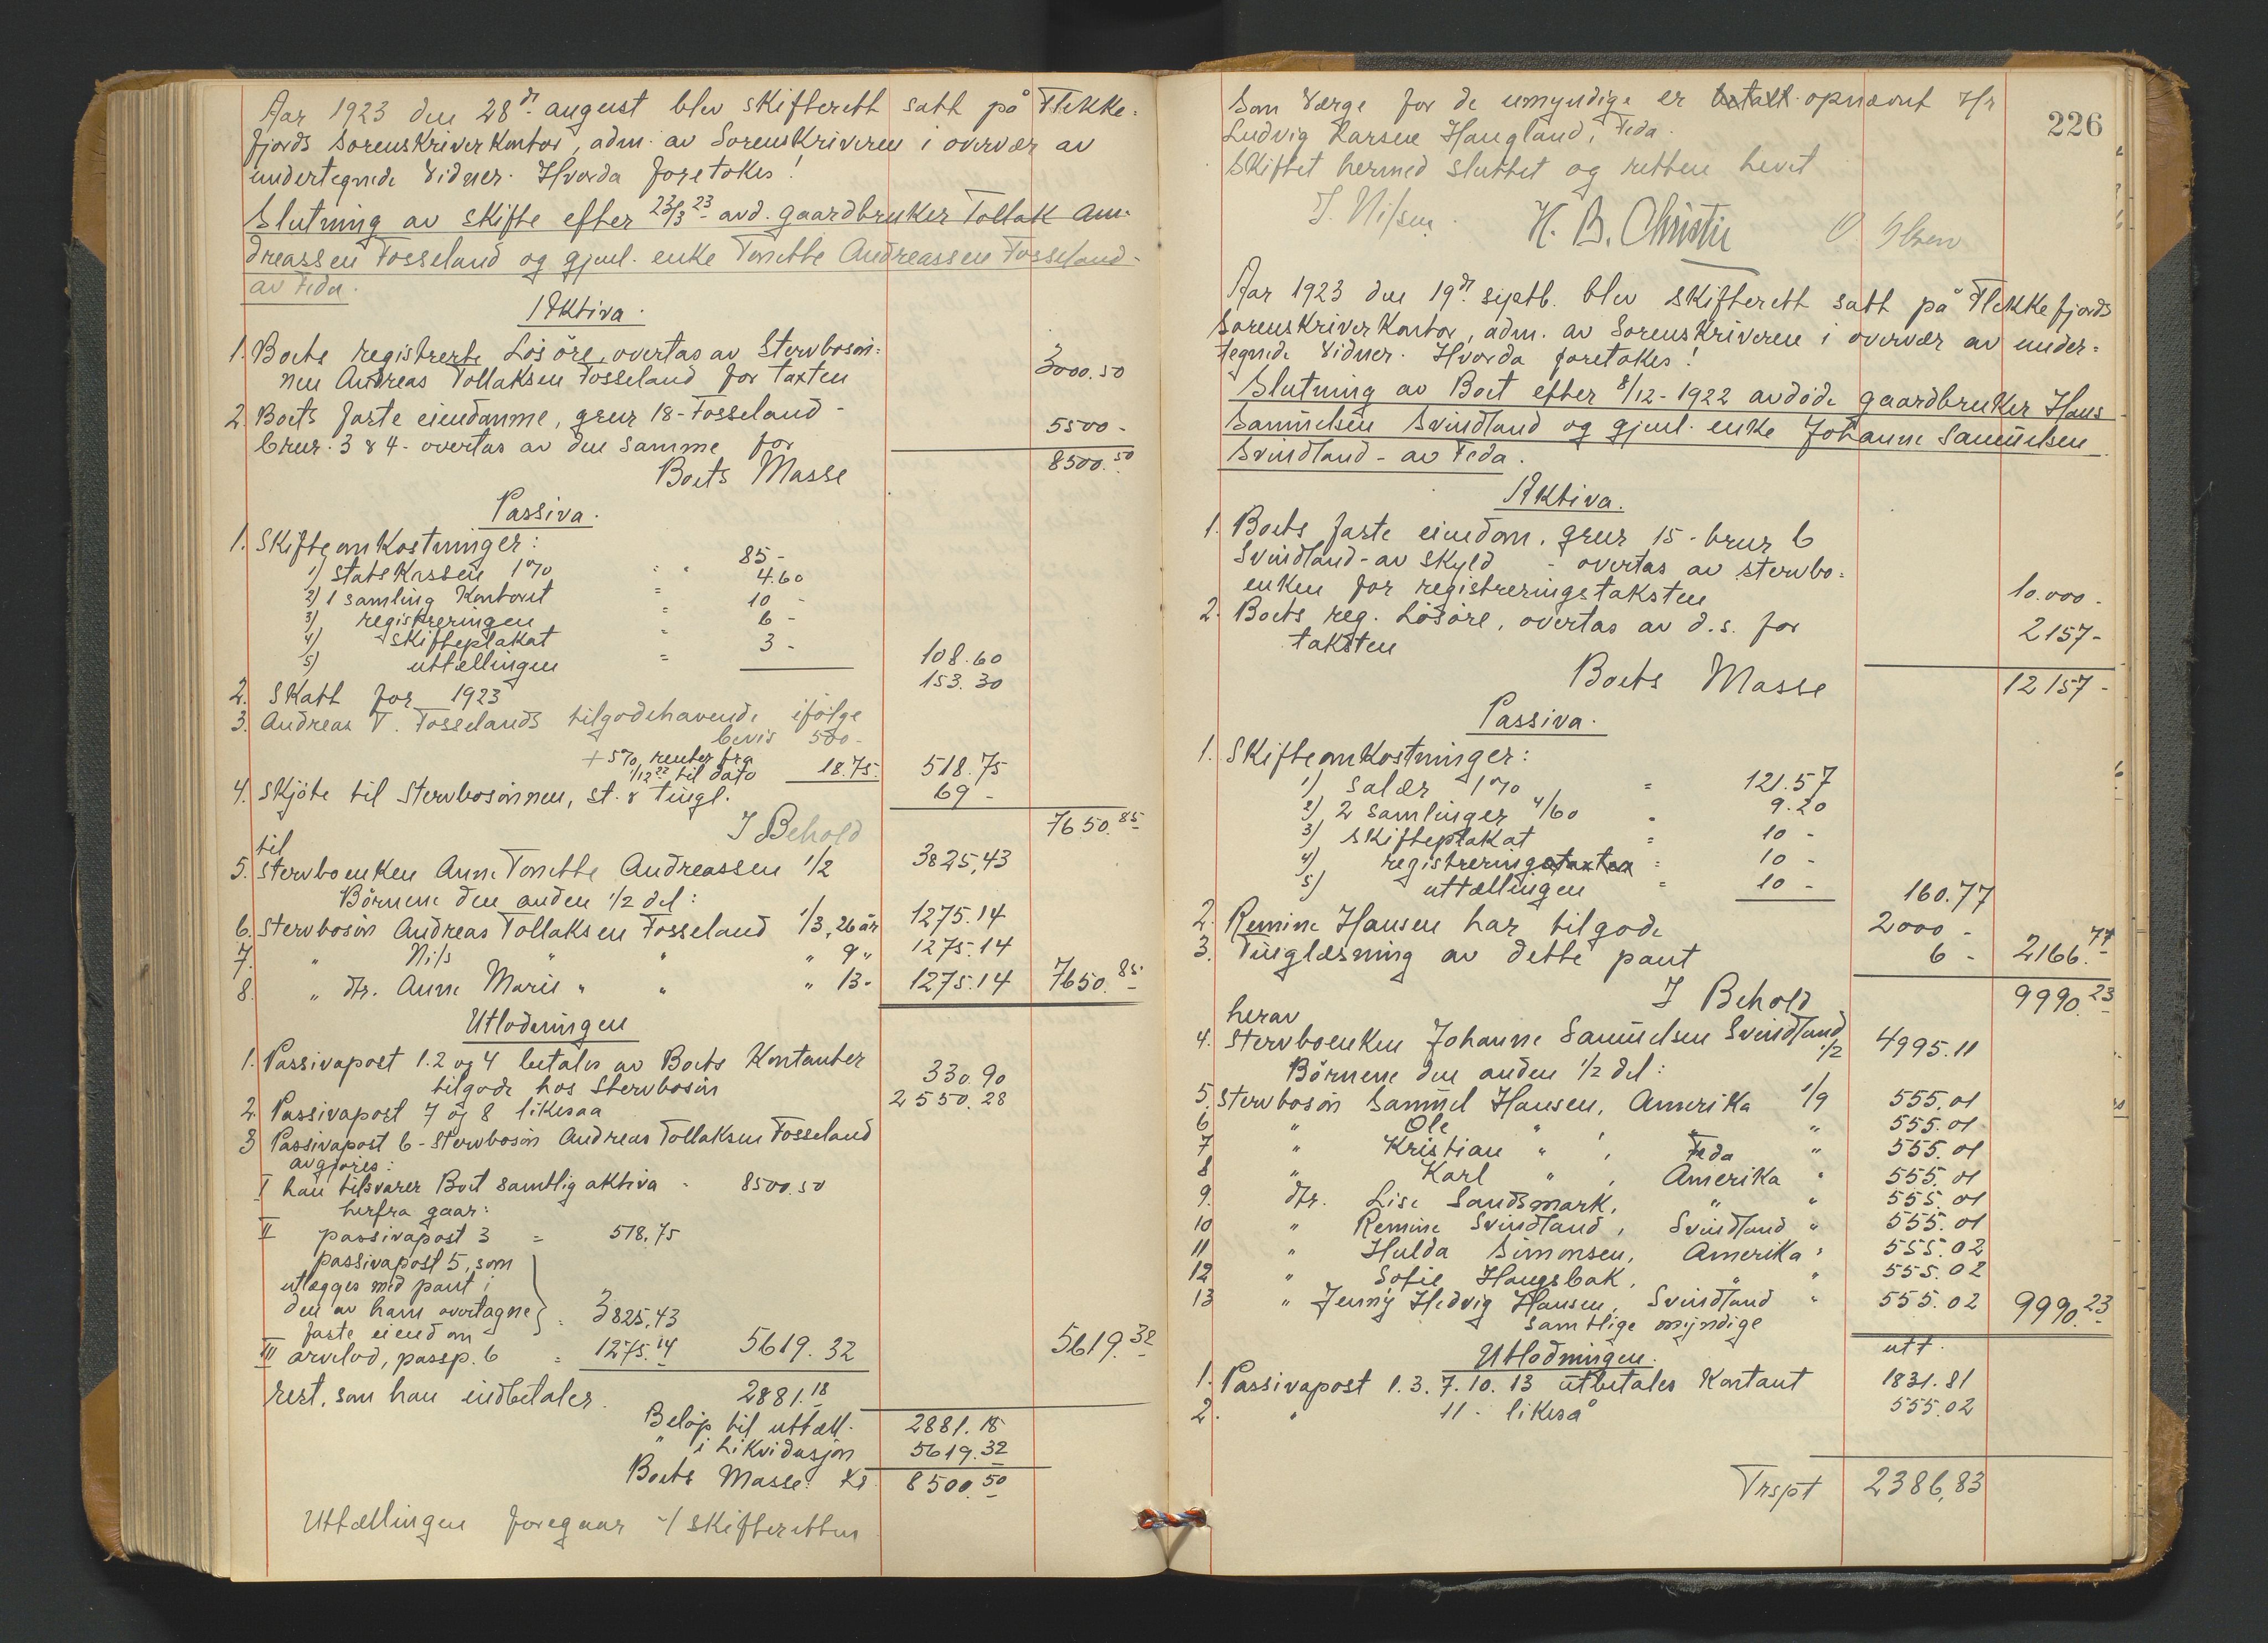 Aar 1923 den 28de august blev skifterett satt på Flekke-
fjords Sorenskriverkontor, adm. av Sorenskriveren i overvær av
undertegnede Vidner. Hvorda foretokes!
Slutning av skifte efter 23/3 23 avd. gaardbruker Tollak An-
dreassen Fosseland og gjenl. enke Tonette Andreassen Fosseland-
av Feda.
Aktiva.
1. Boets registrerte Lösöre, overtas av Stervbosön-
nen Andreas Tollaksen Fosseland for taxten 3000.50
2. Boets faste eiendomme, grnr 18-Fosseland-
brnr. 3 & 4 - overtas av den samme for 5500-
Boets Masse 8500.50
Passiva.
1. Skifteomkostninger:
1) Statskassen 1% " " 85-
2) 1 samling Kontant = 4.60
3) registreringen = 10-
4) Skifteplakat " 6-
5) uttællingen = 3- 108.60
2. Skatt for 1923 153.30
3. Andreas T. Fosselands tilgodehavende ifölge
bevis 500-
+ 5% renter fra
1/12 22 til dato 18.75 518.75
4. Skjöte til Stervbosönnen, st. & tingl. 69-
I Behold 7650.85
til
5. Stervboenken Anne Tonette Andreassen 1/2 3825,43
Börnene den anden 1/2 del:
6. Stervbosön Andreas Tollaksen Fosseland 1/3, 26 år 1275.14
7. " Nils " " " 9 " 1275.14
8. " dtr. Anne Marie " " " 13- 1275.14 7650.85
Utlodningen
1. Passivapost 1.2 og 4 betales av Boets Kontanter
tilgode hos Stervbosön 330.90
2. Passivapost 7 og 8 likesaa 2550.28
3 Passivapost 6 - Stervbosön Andreas Tollaksen Fosseland
avgjöres:
I han tilsvarer Boet samtlig aktiva - 8500.50
herfra gaar:
II passivapost 3 = 518,75
passivapost 5, som
utlegges med pant i
den av ham overtagne
faste eiendom = 3825,43
III arvelod, passp. 6 = 1275.14 5619.32 5619.32
rest, som han indbetaler. 2881.18
Belöp til uttæll. 2881.18
" i Likvidasjon 5619.32
Boets Masse: Kr 8500.50
Uttællingen foregaar v/ skifteretten
226
Som Værge for de umyndige er betalt opnævnt Hr
Ludvig Larsen Haugland, Feda.
Skiftet hermed sluttet og retten hevet
J. Nilsen. H. B. Christie O Olsen
Aar 1923 den 19de septb. blev skifterett satt på Flekkefjords
Sorenskriverkontor, adm. av Sorenskriveren i overvær av under-
tegnede Vidner. Hvorda foretokes!
Slutning av Boet efter 8/12-1922 avdöde gaardbruker Hans
Samuelsen Svindland og gjenl. enke Johanne Samuelsen
Svindland - av Feda.
Aktiva.
1. Boets faste eiendom, grnr 15 - brnr 6
Svindland - av skyld - overtas av stervbo-
enken for registreringstaksten 10.000-
2. Boets reg. Lösöre, overtas av d.s. for
taksten 2157-
Boets Masse 12157-
Passiva.
1. Skifteomkostninger:
1) Salær 1% = 121.57
2) 2 samlinger 4/60 " 9.20
3) Skifteplakat = 10-
4) registreringstaxten = 10-
5) uttællingen = 10- 160.77
2. Remine Hansen har tilgode 2000-
3. Tinglæsning av dette pant 6- 2166.77
I Behold 9990.23
herav
4. Stervboenken Johanne Samuelsen Svindland
1/2 4995.11
Börnene den anden 1/2 del:
5. Stervbosön Samuel Hansen, Amerika 1/9 555.01
6 " Ole " , " " 555.01
7 " Kristian " , Feda " 555.01
8 " Karl " , Amerika " 555.01
9. dtr. Lise Sandsmark, " " 555.01
10 " Remine Svindland, Svindland " 555.01
11 " Hulda Simonsen, Amerika " 555.02
12 " Sofie Haugsbak, " " 555.02
13 " Jenny Hedvig Hansen, Svindland " 555.02 9990.23
samtlige myndige
Utlodningen. utt.
1. Passivapost 1.3.7.10.13 utbetales Kontant 1831.81
2. " 11 - likeså 555.02
Trspt 2386,83